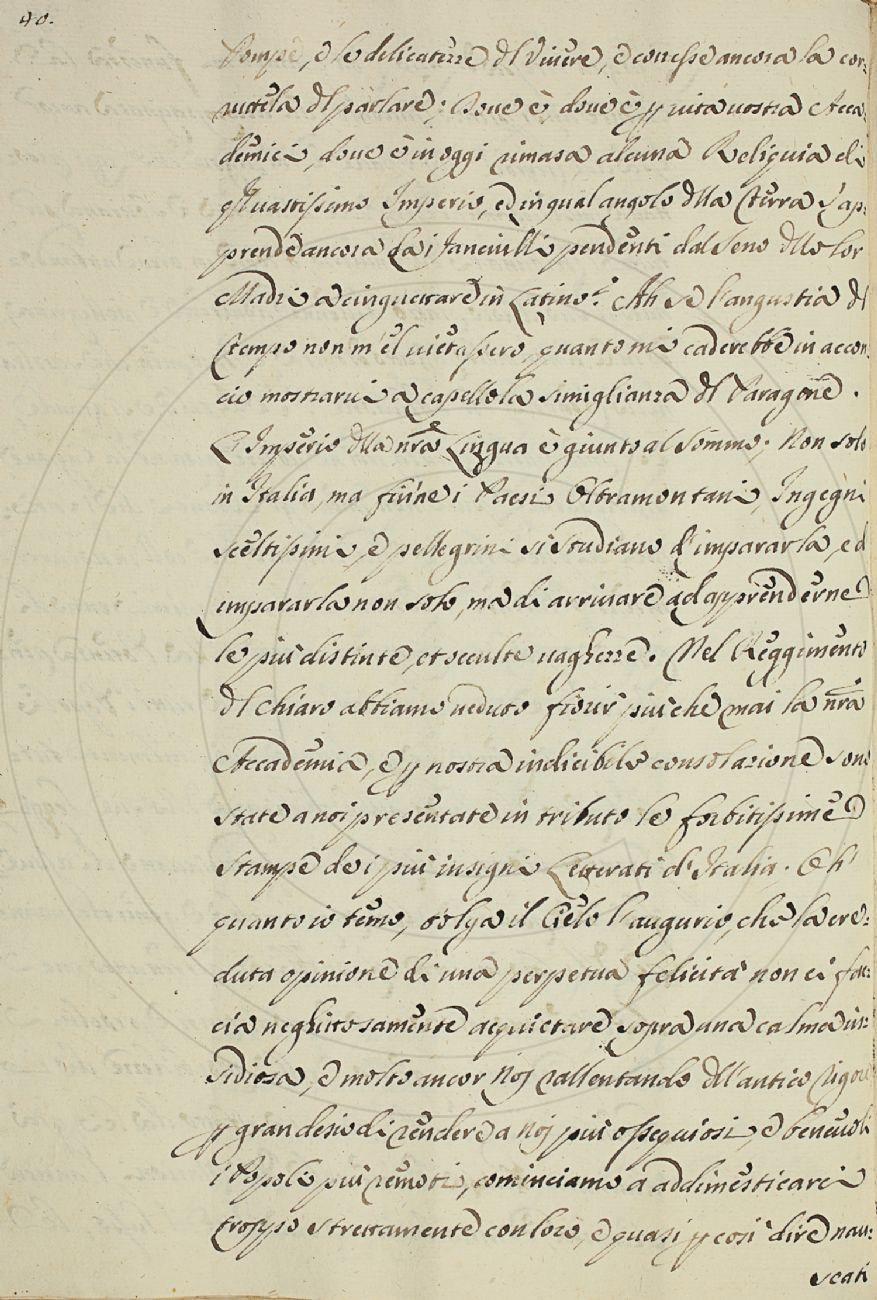 40.
Pompe, e le delicatezze dl Vivere, e concesse ancora la cor:
rutela dl parlare; Dove è, dove è p vita vostra Acca:
demici, dove è in oggi rimasa alcuna Reliquia di
qſto vastissimo Imperio, ed in qual angolo dlla Terra s'ap:
prende ancora da i fanciulli pendenti dal seno dlle lor
Madri a cinguettare in Latino? Ah se l'angustia dl
tempo non m'el vietasse, quanto mi caderebbe in accon:
cio mostrarvi a capello la simiglianza dl Paragone.
L'Imperio dlla nrã Lingua è giunto al sommo; Non solo
in Italia, ma fin'ne i Paesi Oltramontani, Ingegni
sceltissimi, e pellegrini si studiano d'impararla, ed
impararla non solo, ma di arrivare ad apprenderne
le più distinte, et occulte vaghezze. Nel Reggimento
dl Chiaro abbiamo veduto fiorir più che mai la nrã
Accademia, e p nostra indicibile consolazione sono
state a noi presentate in tributo le forbitissime
stampe de i più insigni Letterati d'Italia. Oh
quanto io temo, tolga il Cielo l'augurio, che la cre:
duta opinione di una perpetua felicità non ci fac:
cia neghittosamente acquietare sopra una calma in:
sidiosa, e molto ancor Noj rallentando dll'antico rigore
p gran desio di rendere a Noj più ossequiosi, e benevoli
i Popoli più remoti, cominciamo a addimesticarci
troppo strettamente con loro, e quasj p così dire nau:
scati